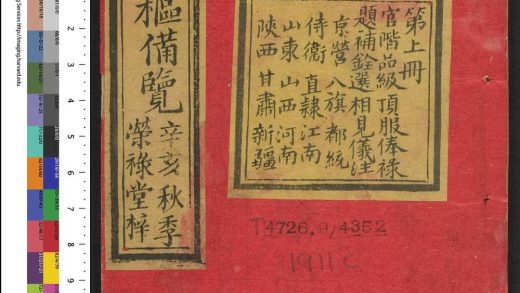 第上冊
官階品級頂服俸祿
題補銓選相見儀注
京營八旗都統
侍衛直隸江南
山東山西河南
陝西甘肅新疆
樞備覽
辛亥秋季
榮祿堂梓
T4726.9/4352
1911C
2
3
4
5
6
7
8
9